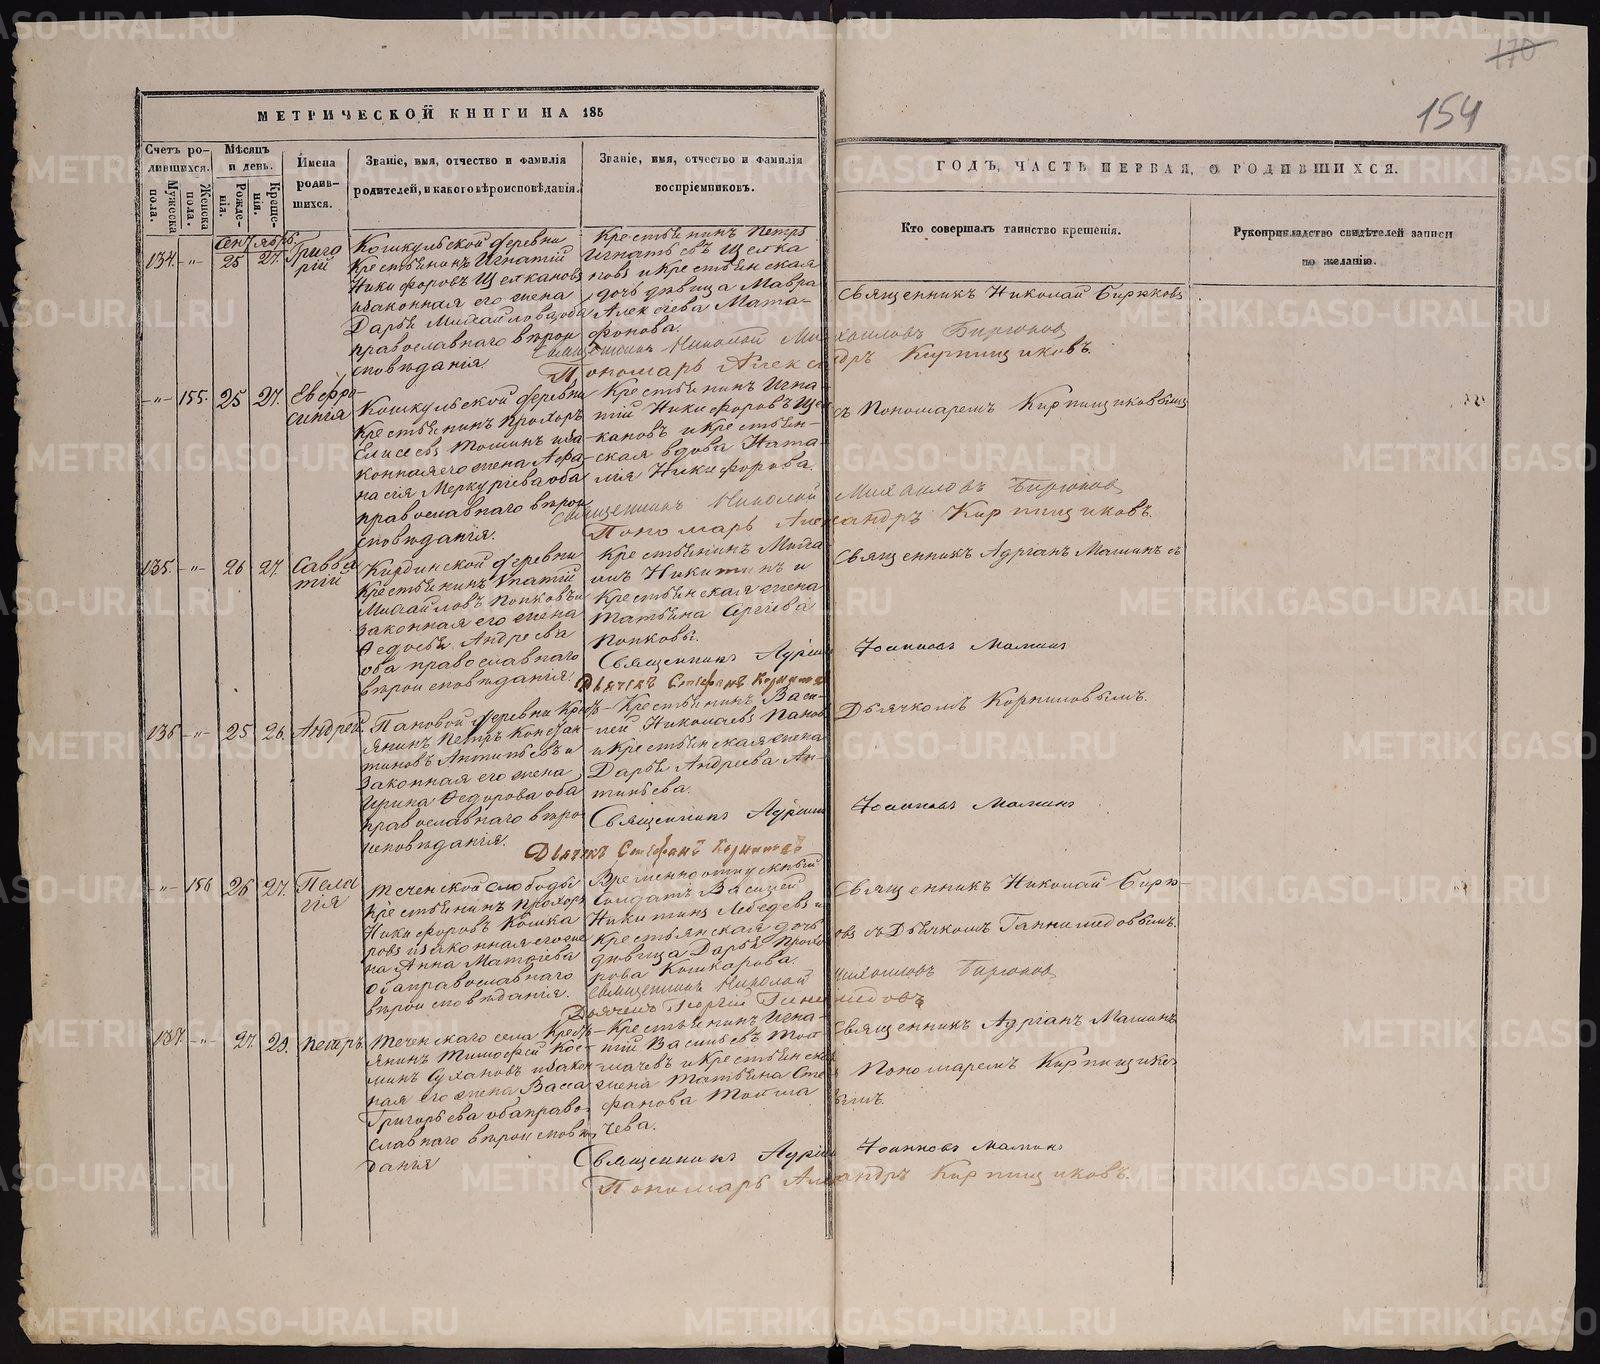 170
154
МЕТРИЧЕСКОЙ КНИГИ НА 185
ГОДЪ, ЧАСТЬ ПЕРВАЯ, О РОДИВШИХСЯ.
Счетъ ро-
дившихся.
Мужеска
пола.
Женска
пола.
Мѣсяцъ
и день.
Рожде-
нія.
Креще-
нія.
Имена
родив-
шихся.
Званіе, имя, отчество и фамилія
родителей, и какого вѣроисповѣданія.
Званіе, имя, отчество и фамилія
воспріемниковъ.
Кто совершалъ таинство крещенія.
Рукоприкладство свидѣтелей записи
по желанію.
Сентябрь
134. -„- 25 27. Григо
рій
Кошкульской деревни
Крестьянинъ Игнатій
Никифоровъ Щелкановъ
и законная его жена
Дарья Михайлова, оба
православнаго вѣрои
споведанія.
Крестьянинъ Петръ
Игнатьевъ Щелка
новъ и крестьянская
дочь дѣвица Мавра
Алексѣева Мата-
фонова.
Священникъ Николай Бирюковъ
Священникъ Николай Михаиловъ Бирюков
Пономарь Александръ Кирпищиковъ.
-„- 155. 25 27. Евфро-
синія
Кошкульской деревни
Крестьянинъ Прохоръ
Елисеевъ Тошинъ и за
конная его жена Афа-
насія Меркурьева оба
православнаго вѣрои
споведанія.
Крестьянинъ Игна-
тій Никифоровъ Щел
кановъ и крестьян-
ская вдова Ната
лія Никифорова.
съ Пономаремъ Кирпищиковымъ
Священникъ Николай Михаиловъ Бирюков
Пономарь Александръ Кирпищиковъ.
135. -„- 26 27. Савва
тій
Кирдинской деревни
Крестьянинъ Ипатій
Михайловъ Попковъ и
законная его жена
Ѳедосья Андреева
оба православнаго
вѣроисповѣданія.
Крестьянинъ Миха
илъ Никитинъ и
Крестьянская жена
Татьяна Сергѣева
Попковы.
Священникъ Адріанъ Маминъ съ
Священникъ Адріанъ Іоанновъ Маминъ
Дьячекъ Стефанъ
136 -„- 25 26. Андрей
Пановой деревни Крест-
янинъ Петръ Констан
тиновъ Антипьевъ и
законная его жена
Ирина Ѳедорова оба
православнаго вѣро
исповѣданія.
Крестьянинъ Васи-
лей Николаевъ Пановъ
и крестьянская жена
Дарья Андреева Ан
типьева.
Дьячкомъ
Священникъ Адріанъ Іоанновъ Маминъ
Дьячекъ Стефанъ
-„- 156 26 27. Пела
гія
Теченской слободы
Крестьянинъ Прохоръ
Никифоровъ Кошка
ровъ и законная его же
на Анна Матвіева
оба православнаго
вѣроисповѣданія.
Временноотпускный
Солдатъ Василей
Никитинъ Лебедевъ и
Крестьянская дочь
дѣвица Дарья Прохо
рова Кошкарова.
Священникъ Николай Бирю-
овъ съ Дьячкомъ Ганимедовымъ.
Священникъ Николай Михаиловъ Бирюков
Дьячекъ Георгій Ганимедовъ
137. -„- 27. 29. Петръ.
Теченскаго села Крест-
янинъ Тимофей Кос-
минъ Сухановъ и закон
ная его жена Васса
Григорьева оба право
славнаго вѣроисповѣ
данія
Крестьянинъ Игна-
тій Васильевъ Тол
мачевъ и крестьянская
жена Татьяна Сте
фанова Толма
чева.
Священникъ Адріанъ Маминъ
Пономаремъ Кирпищико
вымъ.
Священникъ Адріанъ Іоанновъ Маминъ
Пономарь Александръ Кирпищиковъ.
METRIKI.GASO-URAL.RU